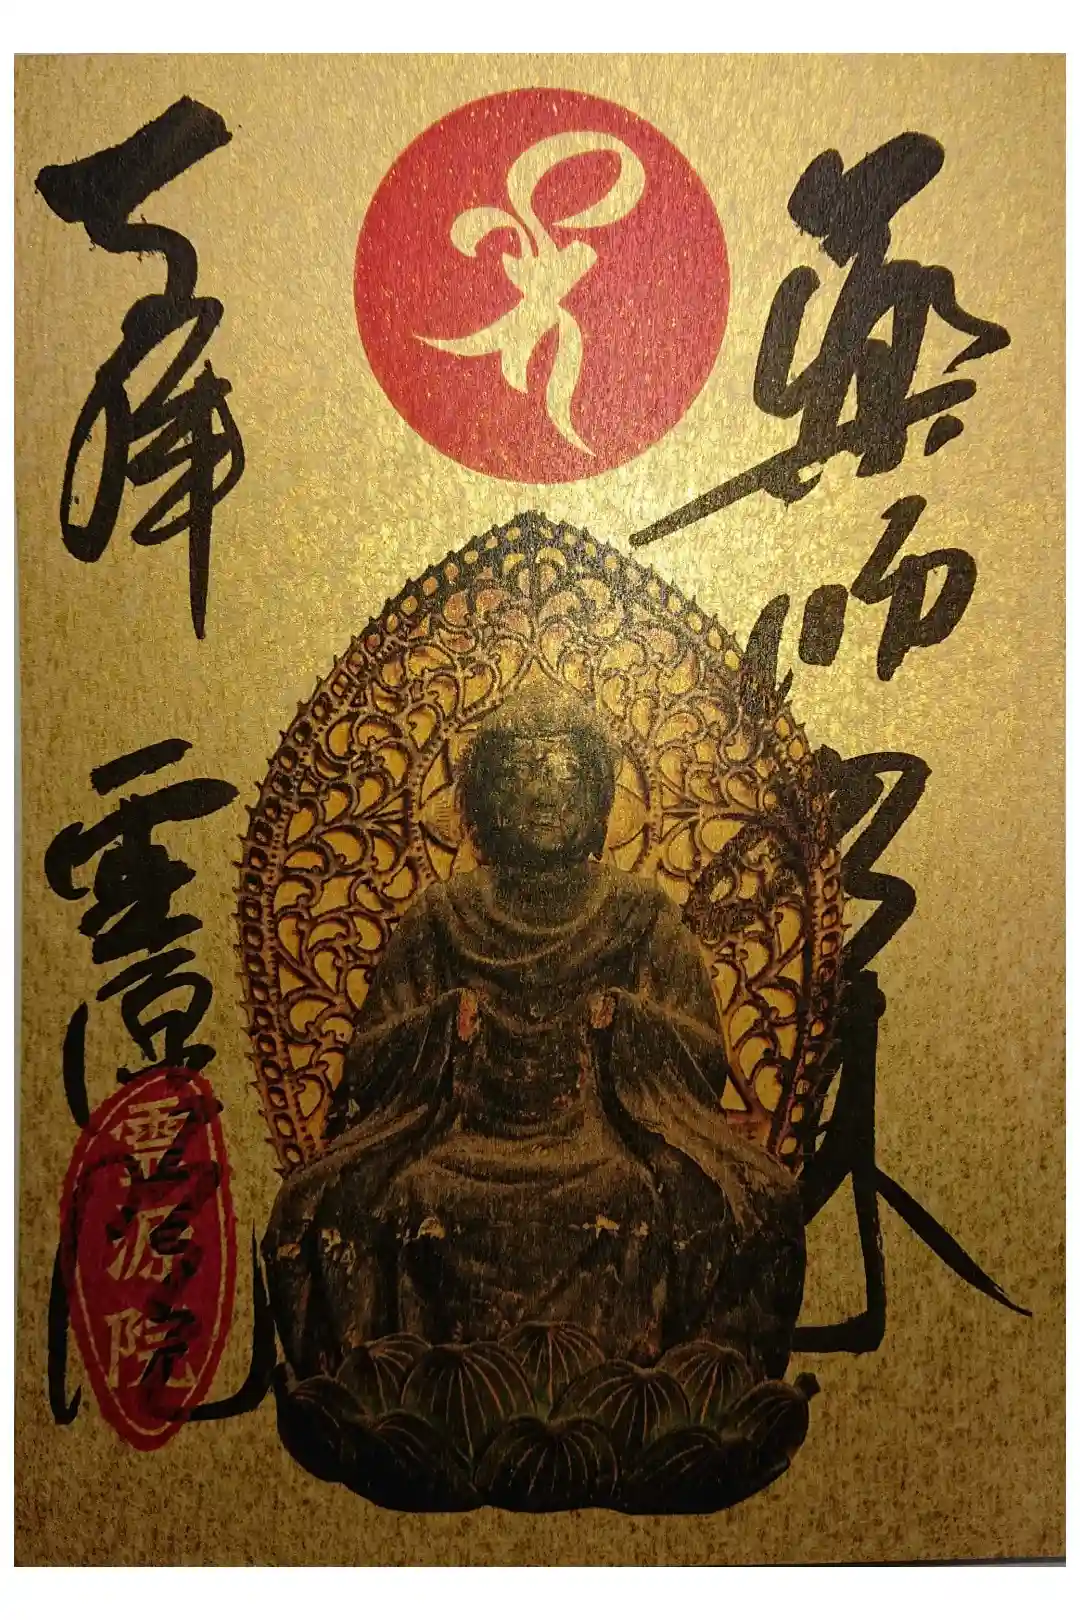 薬師如来
霊源院
霊源院